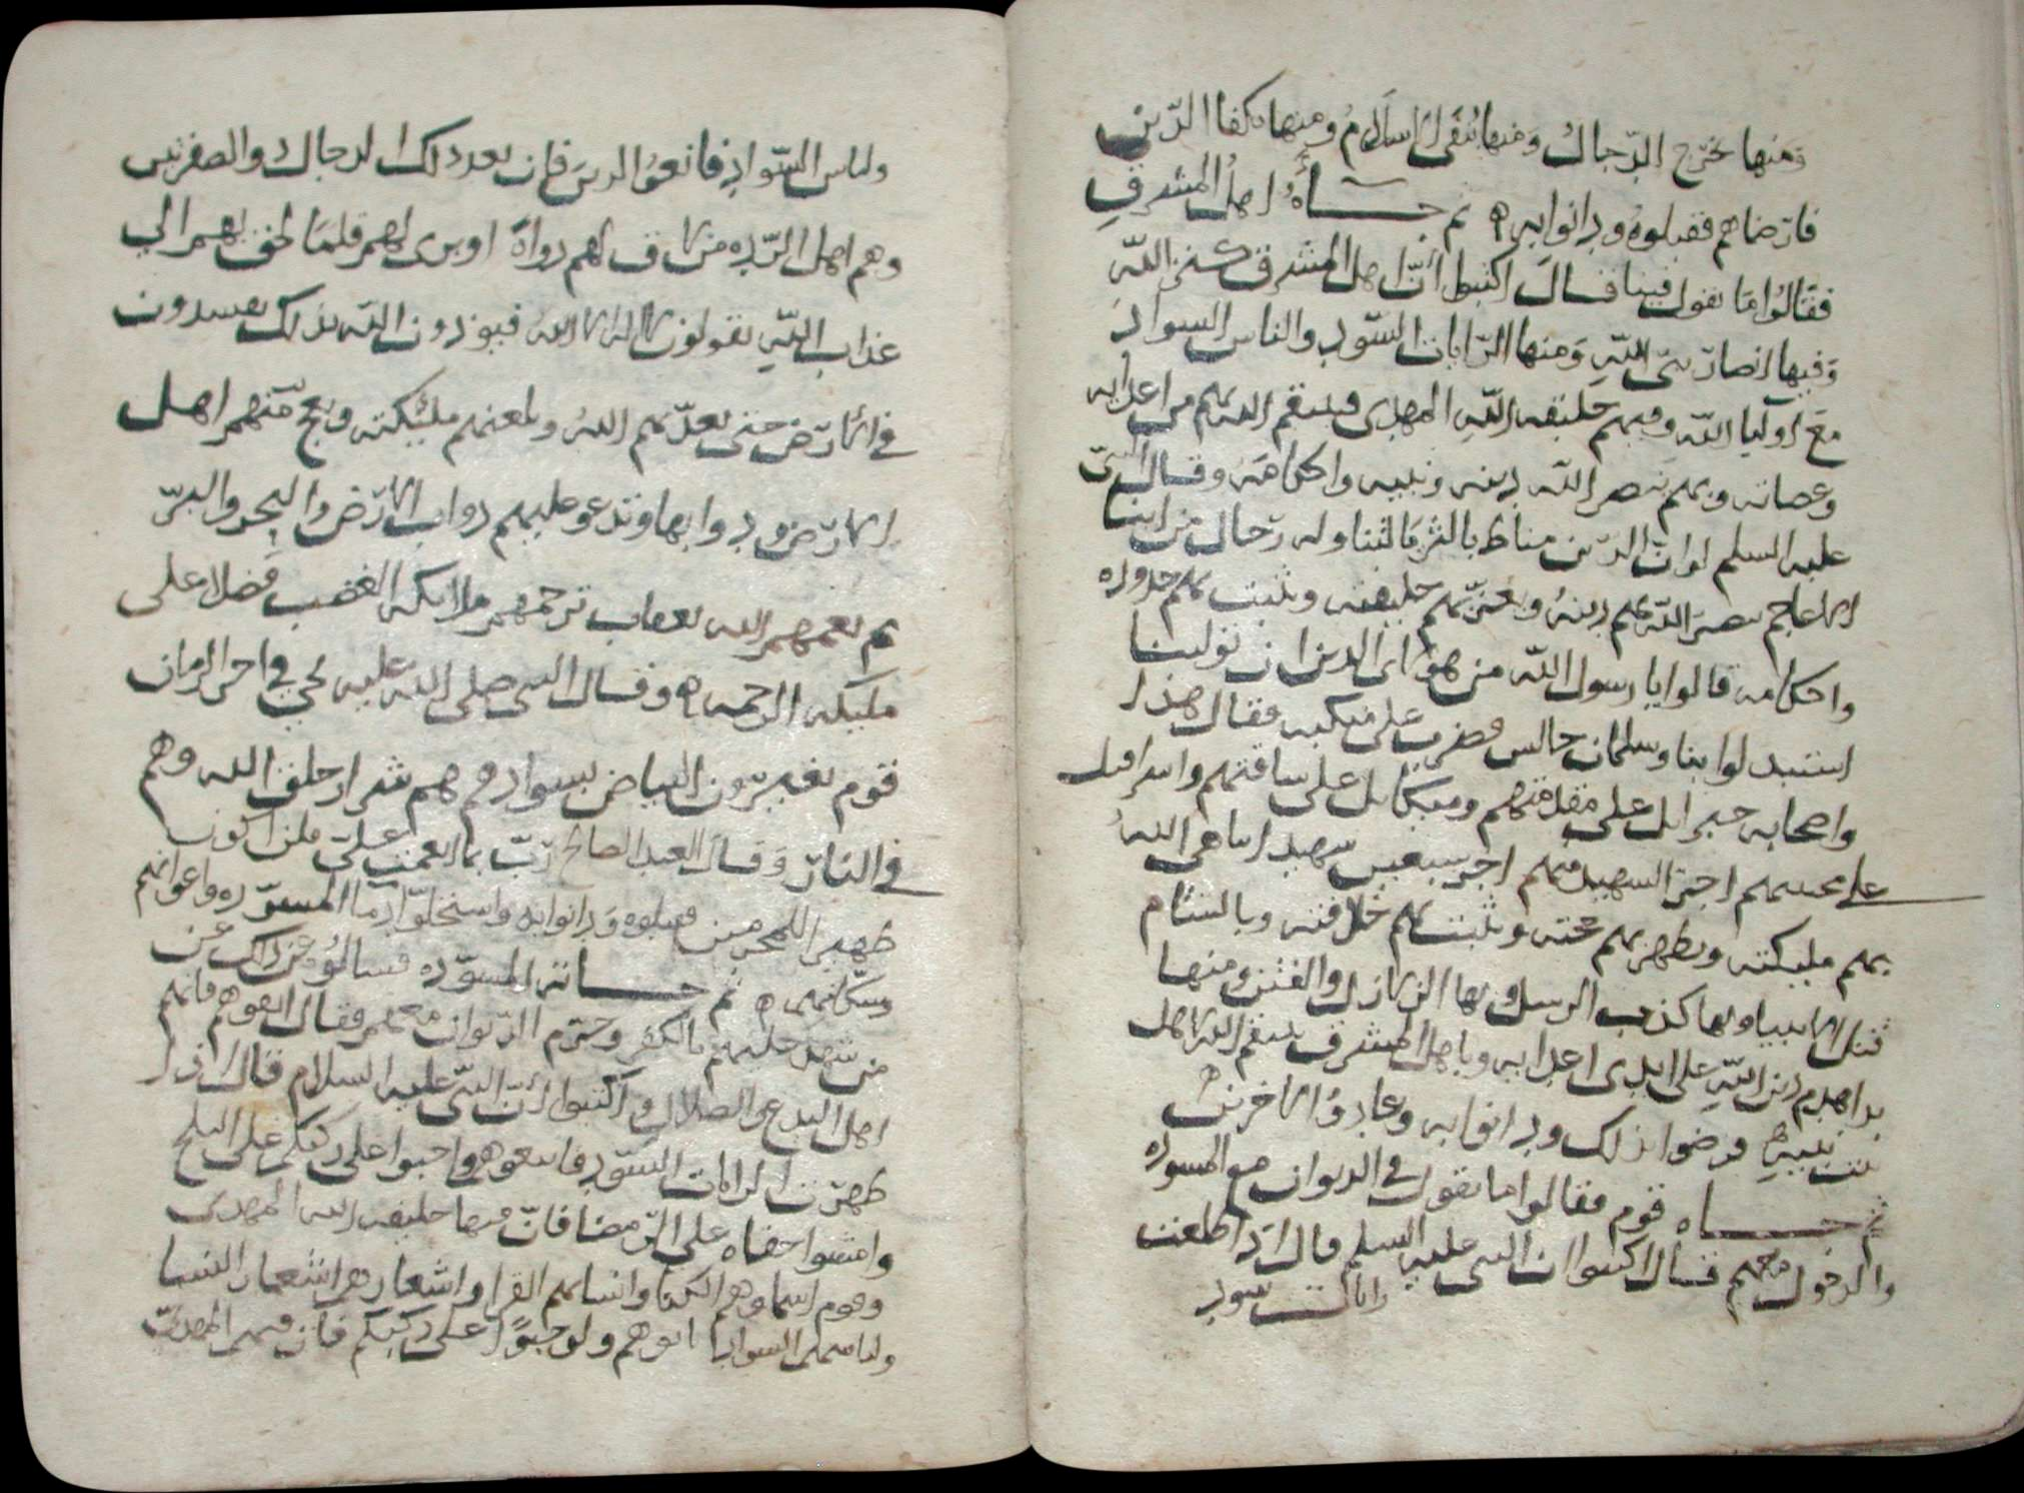 ومنها يخرج الدجال ومنها ينفى الاسلام ومنها يكفا الدين
فارضاهم فقبلوه ودانوا به ثم جاه اهل المشرق
فقالوا ما تقول فينا فقال اكتبوا ان اهل المشرق الله
وفيها انصار نبي الله ومنها الرايات السود والناس السواد
مع اوليا الله وفيهم خليفه الله المهدي فينتقم الله بهم من اعدايه
وعصاته وبهم ينصر الله دينه ونبيه واحكامه وقال النبي
عليه السلم لو ان الدين مناط بالثريا لتناوله رجال من ابنا
الاعاجم ينصر الله بهم دينه ويعز بهم خليفته ويثبت بهم حدوده
واحكامه قالوا يا رسول الله من هوا لاى الذين ان تولينا
استبدلوا بنا وسلمان جالس فضرب على منكبه فقال هذا
واصحابه جبرايل على مقدمتهم وميكايل على ساقتهم واسرافيل
على مجنبتهم اجر الشهيد منهم اجر سبعين شهيد يباهى الله
بهم مليكته ويظهر بهم حجته ويثبت بهم خلافته وبالشام
قتل الانبيا وبها كذب الرسل وبها الزلازل والفتن ومنها
بدا هدم دين الله على ايدي اعدايه وباهل المشرق ينتقم الله لاهل
بيت نبيه فرضوا بذلك ودانوا به وعادوا الاخرين
ثم جاه قوم فقالوا ما تقول في الديوان مع المسوده
والدخول معهم فقال اكتبوا ان النبي عليه السلم قال اذا طلعت
رايات سود
ولباس السواد فاتبعوا الدين فان بعد ذلك الدجال والصفرتين
وهم اهل الرده من لاق لهم دواة او برى لهم قلما لحق بهم الى
عذاب الله يقولون لا اله الا الله فيوذون الله بذلك يفسدون
في الارض حتى يعذبهم الله ويلعنهم مليكته ويعج منهم اهل
الارض ودوابها وتدعو عليهم دواب الارض والبحر والبر
ثم يعمهم الله بعقاب ترحمهم ملايكه الغضب فضلا على
مليكه الرحمه وقال النبي صلى الله عليه يجي في اخر الزمان
قوم يغيرون البياض بسواد هم شرار خلق الله وهم
في النار وقال العبد الصالح رب بما انعمت على فلن اكون
ظهيرا للمجرمين فقبلوه ودانوا به واستحلوا دما المسوده واعوانهم
وسكانهم ثم جاته المسوده فسالوه عن ذاك عن
من شهد عليهم بالكفر وحرم الديوان معهم فقال اتقوهم فانهم
اهل البدع والضلال واكتبوا ان النبي عليه السلام قال اذا
ظهرت الرايات السود فاتبعوهم واحبوا على ركبكم على الثلج
وامشوا حفاه على الرمضا فان فيها خليفه الله المهدي
وقوم اسماوهم الكنا وانسابهم القرا واشعارهم اشعار النسا
ولباسهم السواد اتوهم ولو حبوا على ركبكم فان فيهم المهدي